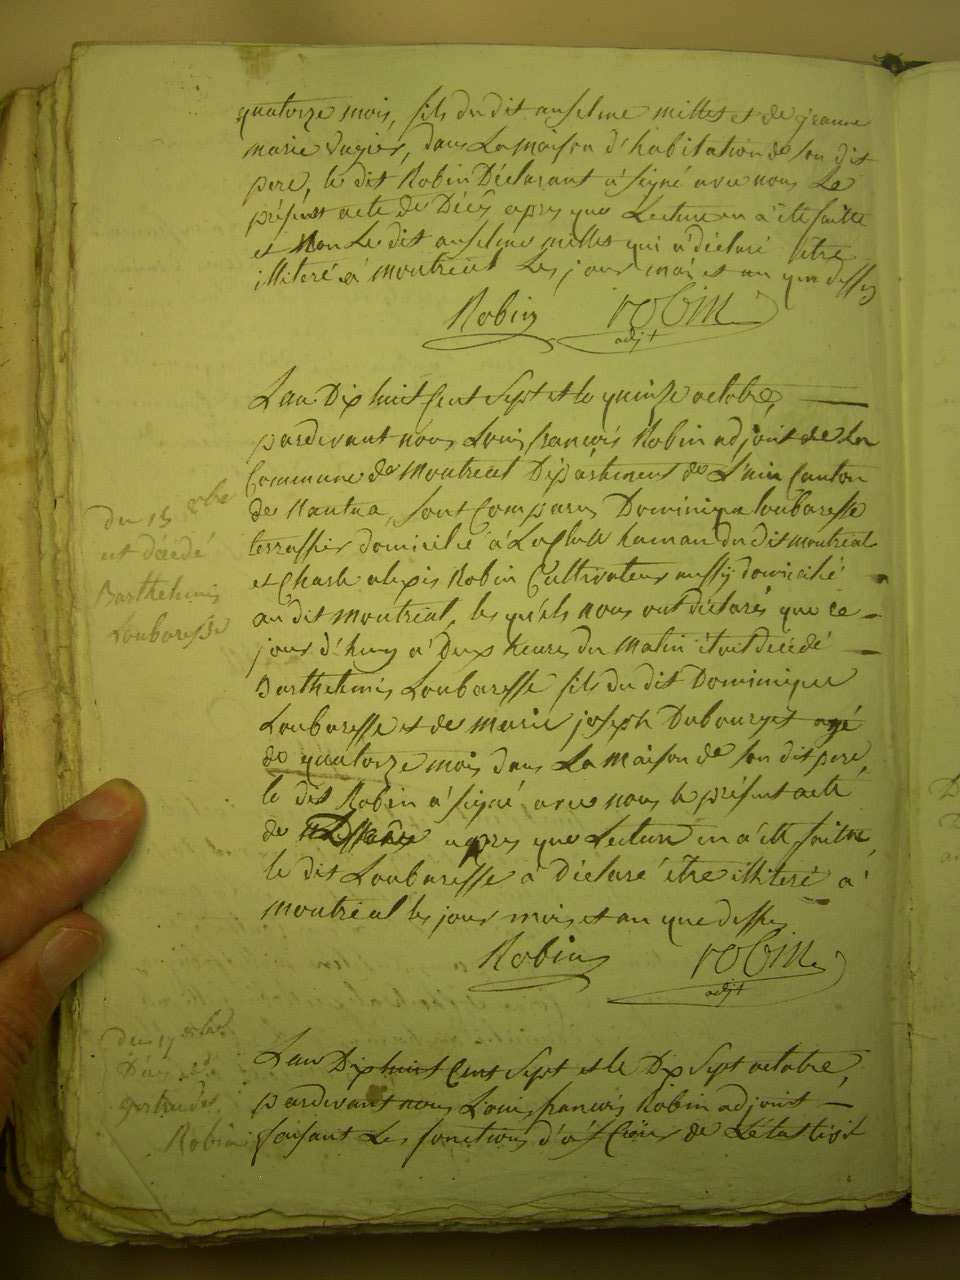 quatorze mois, fils du dit anselme millet et de jeanne
marie Jugier, dans La maison d'habitation de son dit
pere, le dit Robin Déclarant à signé avec nous Le
présent acte de Décés apres que Lecture en à été faitte
et Non Le dit anselme millet qui à déclaré être
illiteré à montreal Les jour mois et an que dessus
Robin robin
adjt
Lan Dix huit Cent Sept et le quinze octobre,
pardevant nous Louis françois Robin adjoint de La
Commune de Montreal Département de L'ain Canton
de Nantua, Sont Comparus Dominique Loubaresse
terrassier domicilié à hamau du dit montreal
et Charle alexis Robin Cultivateur aussy domicilié
au dit montreal, les quels nous ont déclarés que ce
jour d'huy à Deux heures du Matin étoit décédé
Barthelemis Loubaresse fils du dit Dominique
Loubaresse et de marie joseph Dubourget agé
de quatorze mois dans La maison de son dit pere,
le dit Robin à signé avec nous le présent acte
de apres que Lecture en à été faitte,
le dit Loubaresse à Déclaré être illiteré à
montréal les jour mois et an que dessus
Robin robin
adjt
du 15 8bre
est décédé
Barthelemis
Loubaresse
du 17 8bre
Décés de
gertrudes
Robin
Lan Dix huit Cent Sept et le Dix Sept octobre,
pardevant nous Louis françois Robin adjoint
faisant Les fonctions d'officier de L'état civil